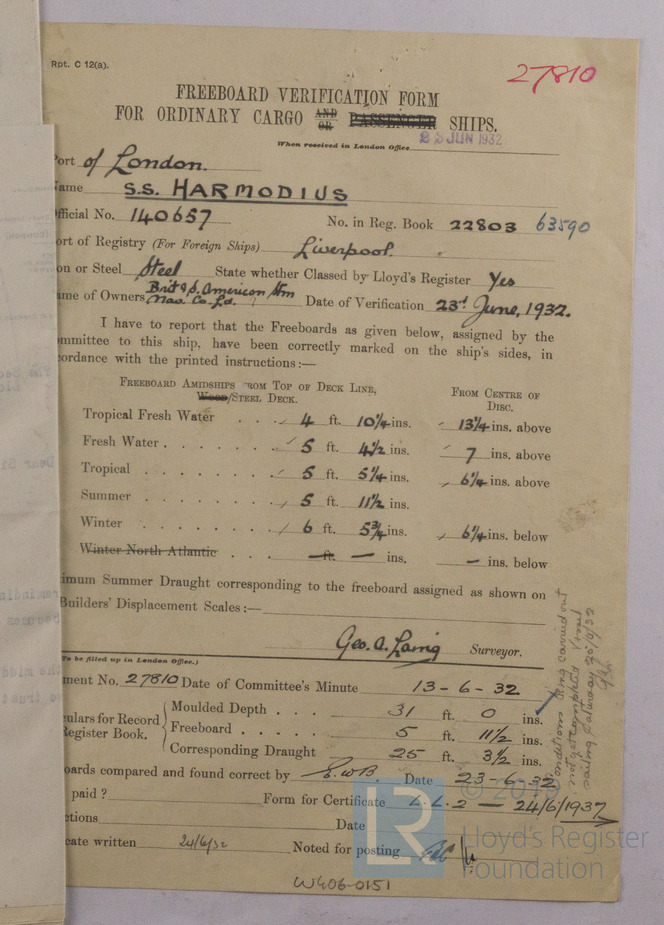 Rpt. C 12(a).
27810
FREEBOARD VERIFICATION FORM
FOR ORDINARY CARGO AND OR PASSENGER SHIPS.
When received in London Office 23 JUN 1932
ort of London.
ame S.S. HARMODIUS
fficial No. 140657 No. in Reg. Book 22803 63590
ort of Registry (For Foreign Ships) Liverpool.
on or Steel Steel State whether Classed by Lloyd's Register Yes
ame of Owners Brit & S. American Stm Nav. Co. Ld. Date of Verification 23d June, 1932.
I have to report that the Freeboards as given below, assigned by the
ommittee to this ship, have been correctly marked on the ship's sides, in
cordance with the printed instructions:—
FREEBOARD AMIDSHIPS FROM TOP OF DECK LINE, WOOD/STEEL DECK. FROM CENTRE OF DISC.
Tropical Fresh Water . . . 4 ft. 10 1/4 ins. 13 1/4 ins. above
Fresh Water . . . . . . 5 ft. 4 1/2 ins. 7 ins. above
Tropical . . . . . . . 5 ft. 5 1/4 ins. 6 1/4 ins. above
Summer . . . . . . . 5 ft. 11 1/2 ins.
Winter . . . . . . . 6 ft. 5 3/4 ins. 6 1/4 ins. below
Winter North Atlantic . . . — ft. — ins. — ins. below
imum Summer Draught corresponding to the freeboard assigned as shown on
Builders' Displacement Scales:—
Geo. A. Laing Surveyor.
To be filled up in London Office.)
ment No. 27810 Date of Committee's Minute 13-6-32
culars for Record Register Book.
Moulded Depth . . 31 ft. 0 ins.
Freeboard . . . . . 5 ft. 11 1/2 ins.
Corresponding Draught 25 ft. 3 1/2 ins.
oards compared and found correct by E.W.B. Date 23-6-32
paid ? Form for Certificate L.L.2 — 24/6/1937
ctions Date
cate written 24/6/32 Noted for posting
conditions being carried out
not yet complied
sailing Saturday
© 2019
LR
Lloyd's Register
Foundation
W406-0151